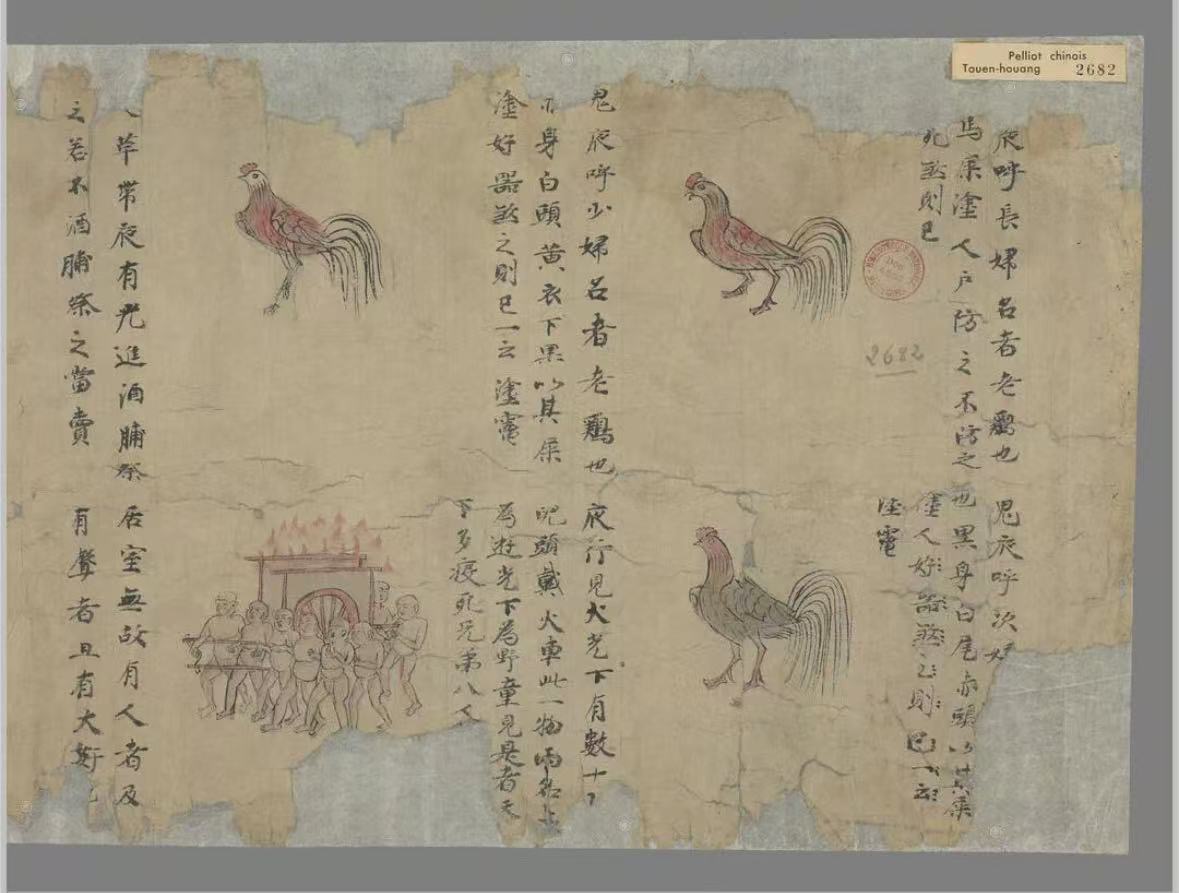 Pelliot chinois
Touen-houang 2682
夜呼長婦名者老鷄也
馬屎塗人戶防之不防之
死煞則已
2682
鬼夜呼次婦
也黑身白尾赤頭以其屎
塗人好器煞之則已一云
塗竈
鬼夜呼少婦名者老鷄也
赤身白頭黃衣下黑以其屎
塗好器煞之則已一云塗竈
夜行見火光下有數十
兒頭戴火車此一物兩名上
為遊光下為野童見是者天
下多疫死兄弟八人
草帶夜有光進酒脯祭
之若不酒脯祭之當賣
居室無故有人者及
有聲者且有犬